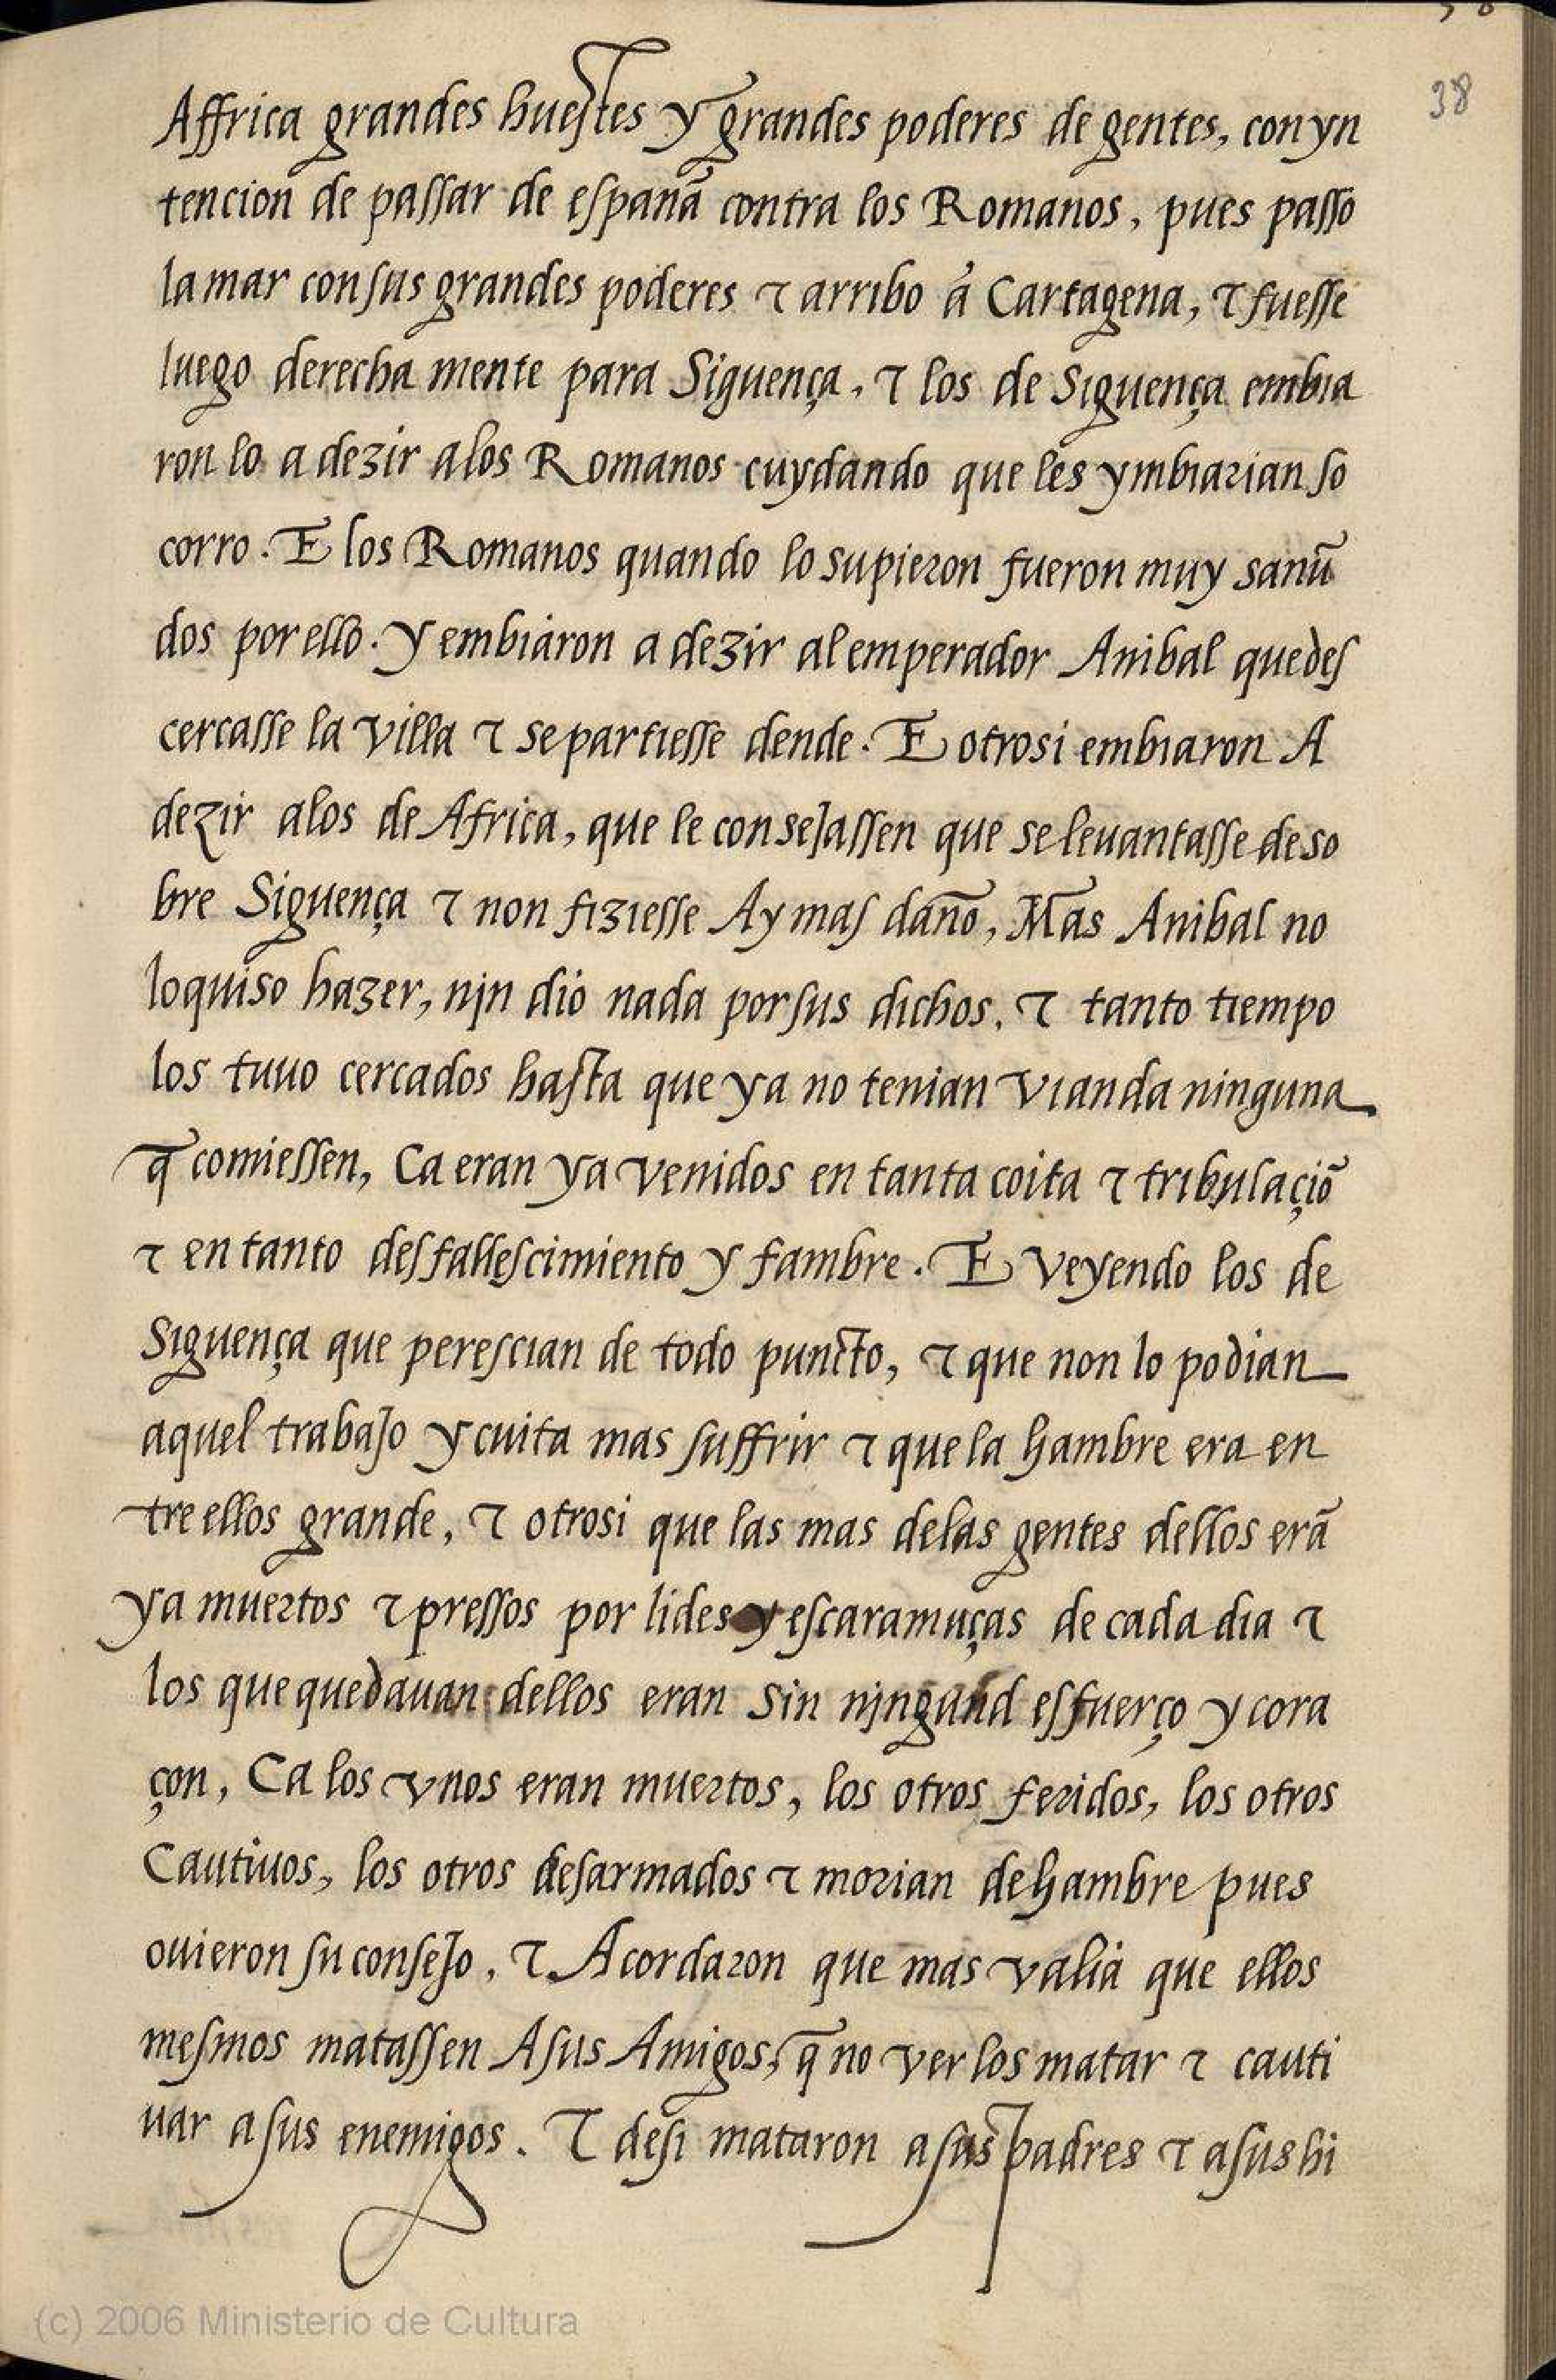 38
Affrica grandes huestes y grandes poderes de gentes, con yn
tencion de passar de espanã contra los Romanos, pues passo
la mar con sus grandes poderes ⁊ arribo à Cartagena, ⁊ fuesse
luego derecha mente para Siguença, ⁊ los de Siguença embia
ron lo a dezir a los Romanos cuydando que les ymbiarian so
corro. E los Romanos quando lo supieron fueron muy sanũ
dos por ello. y embiaron a dezir al emperador Anibal que des
cercasse la villa ⁊ se partiesse dende. E otrosi embiaron A
dezir a los de Africa, que le consejassen que se leuantasse de so
bre Siguença ⁊ non fiziesse Ay mas daño, Mas Anibal no
lo quiso hazer, njn dio nada por sus dichos. ⁊ tanto tiempo
los tuuo cercados hasta que ya no tenian vianda ninguna
q̃ comiessen, Ca eran ya venidos en tanta coita ⁊ tribulaçiõ
⁊ en tanto desfallescimiento y fambre. E veyendo los de
Siguença que perescian de todo puncto, ⁊ que non lo podian
aquel trabajo y cuita mas suffrir ⁊ que la hambre era en
tre ellos grande, ⁊ otrosi que las mas de las gentes dellos erã
ya muertos ⁊ pressos por lides y escaramuças de cada dia ⁊
los que quedauan dellos eran sin njngund esfuerço y cora
çon, Ca los vnos eran muertos, los otros feridos, los otros
Cautiuos, los otros desarmados ⁊ morian de hambre pues
ouieron su consejo, ⁊ Acordaron que mas valia que ellos
mesmos matassen A sus Amigos, q̃ no ver los matar ⁊ cauti
uar a sus enemigos. ⁊ desi mataron a sus padres ⁊ a sus hi
(c) 2006 Ministerio de Cultura